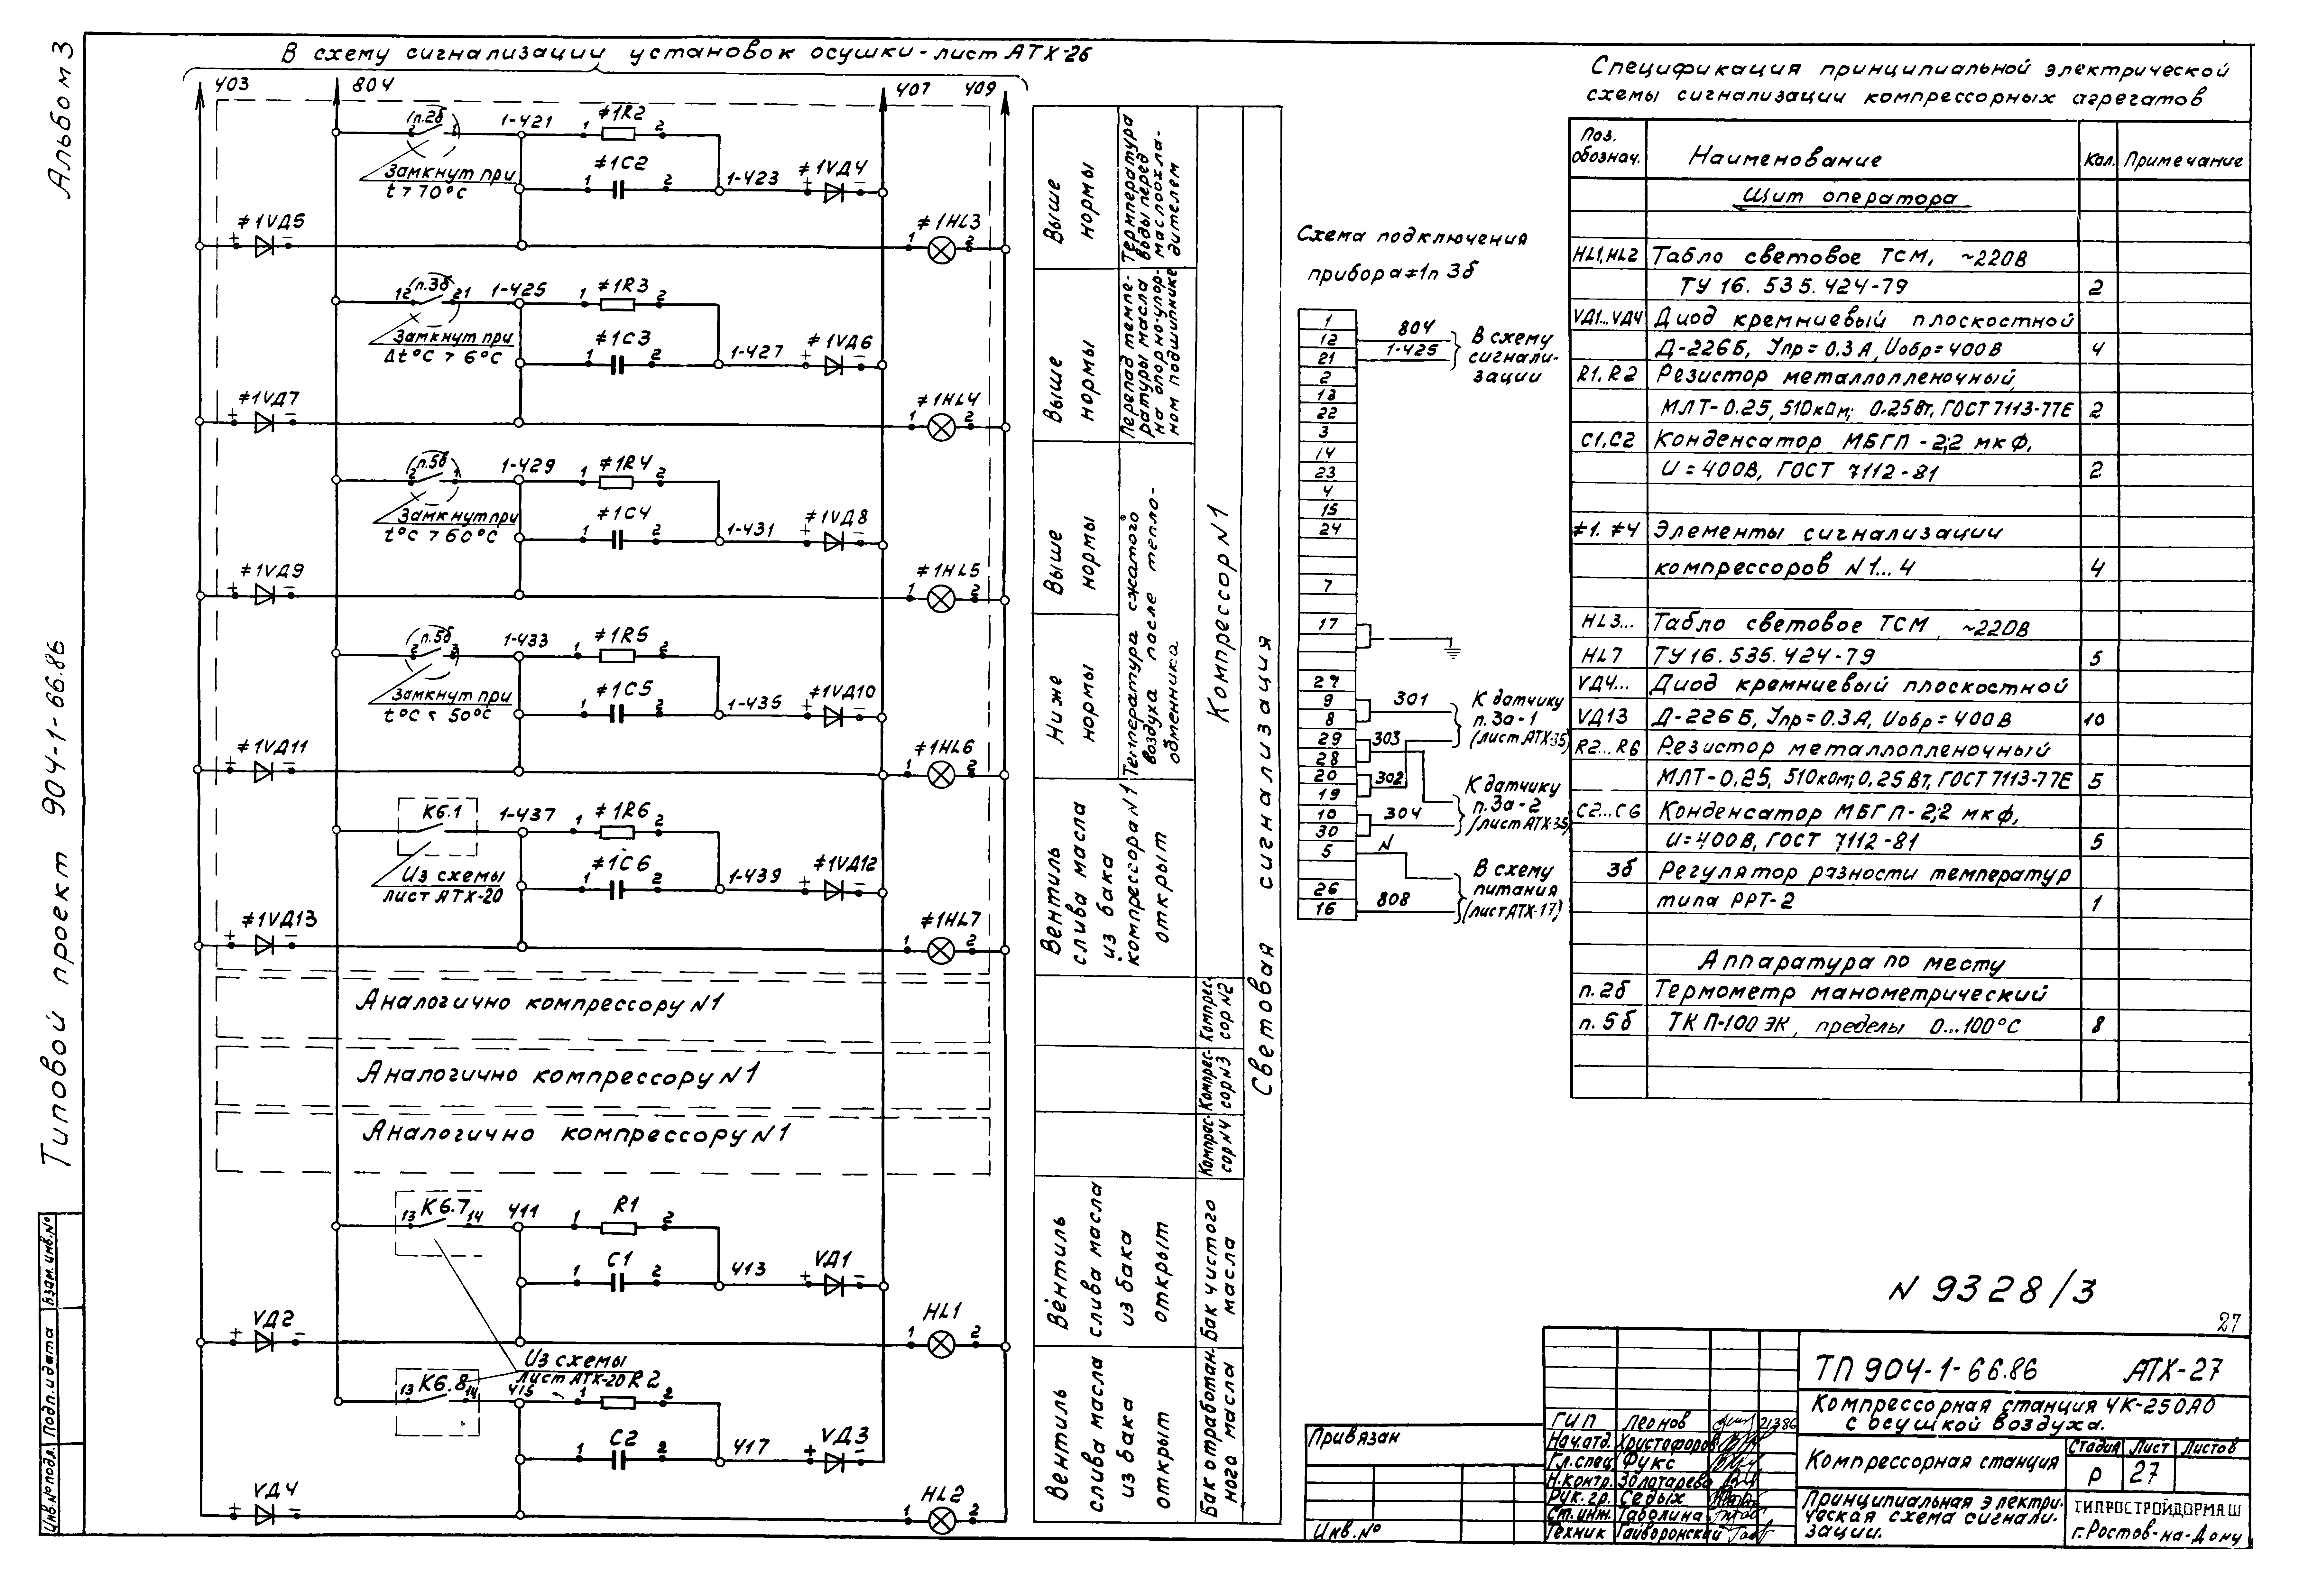 Альбом 3
Типовой проект 904-1-66.86
Взам. инв. №
Подп. и дата
Инв. № подл.
В схему сигнализации установок осушки - лист АТХ-26
403
804
407
409
(п.2б)
2
1
1-421
1
≠1R2
2
≠1C2
1
2
Замкнут при
t > 70°С
1-423
≠1VД4
+
-
≠1VД5
+
-
≠1HL3
1
2
(п.3б)
12
21
1-425
1
≠1R3
2
≠1C3
1
2
Замкнут при
Δt°С > 6°С
1-427
≠1VД6
+
-
≠1VД7
+
-
≠1HL4
1
2
(п.5б)
2
1
1-429
1
≠1R4
2
≠1C4
1
2
Замкнут при
t°С > 60°С
1-431
≠1VД8
+
-
≠1VД9
+
-
≠1HL5
1
2
(п.5б)
2
3
1-433
1
≠1R5
2
≠1C5
1
2
Замкнут при
t°С < 50°С
1-435
≠1VД10
+
-
≠1VД11
+
-
≠1HL6
1
2
К6.1
1-437
1
≠1R6
2
≠1C6
1
2
Из схемы
лист АТХ-20
1-439
≠1VД12
+
-
≠1VД13
+
-
≠1HL7
1
2
Аналогично компрессору N1
Аналогично компрессору N1
Аналогично компрессору N1
К6.7
13
14
411
1
R1
2
C1
1
2
413
VД1
+
-
VД2
+
-
HL1
1
2
Из схемы
лист АТХ-20
К6.8
13
14
415
1
R2
2
C2
1
2
417
VД3
+
-
VД4
+
-
HL2
1
2
Выше
нормы
Температура
воды перед
маслоохла-
дителем
Выше
нормы
Перепад темпе-
ратуры масла
на опорно-упор-
ном подшипнике
Выше
нормы
Ниже
нормы
Температура сжатого
воздуха после тепло-
обменника
Вентиль
слива масла
из бака
компрессора N1
открыт
Компрессор N1
Компрес-
сор N2
Компрес-
сор N3
Компрес-
сор N4
Вентиль
слива масла
из бака
открыт
Бак чистого
масла
Вентиль
слива масла
из бака
открыт
Бак отработан-
ного масла
Световая сигнализация
Схема подключения
прибора ≠1п 3б
1
12
21
2
13
22
3
14
23
4
15
24
7
17
27
9
8
29
28
20
19
10
30
5
26
16
804
1-425
В схему
сигнали-
зации
301
303
302
304
N
808
К датчику
п. 3а-1
(лист АТХ-35)
К датчику
п. 3а-2
(лист АТХ-35)
В схему
питания
(лист АТХ-17)
Спецификация принципиальной электрической
схемы сигнализации компрессорных агрегатов
Поз. обознач. Наименование Кол. Примечание
Щит оператора
HL1, HL2 Табло световое ТСМ, ~220В
ТУ 16. 535. 424-79 2
VД1...VД4 Диод кремниевый плоскостной
Д-226Б, Jпр = 0.3А, Uобр = 400В 4
R1, R2 Резистор металлопленочный,
МЛТ-0.25, 510кОм; 0.25Вт, ГОСТ 7113-77Е 2
С1, С2 Конденсатор МБГП - 2;2 мкф,
U = 400В, ГОСТ 7112-81 2
≠1. ≠4 Элементы сигнализации
компрессоров N1...4 4
HL3... Табло световое ТСМ, ~220В
HL7 ТУ 16. 535. 424-79 5
VД4... Диод кремниевый плоскостной
VД13 Д-226Б, Jпр = 0.3А, Uобр = 400В 10
R2...R6 Резистор металлопленочный
МЛТ-0,25, 510кОм; 0.25Вт, ГОСТ 7113-77Е 5
С2...С6 Конденсатор МБГП-2;2 мкф,
U = 400В, ГОСТ 7112-81 5
3б Регулятор разности температур
типа РРТ-2 1
Аппаратура по месту
п. 2б Термометр манометрический
п. 5б ТКП-100ЭК, пределы 0...100°С 8
N 9328/3
27
ТП 904-1-66.86 АТХ-27
Компрессорная станция 4К-250А0
с осушкой воздуха.
ГИП Леонов 21386
Нач.отд. Христофоров
Гл.спец. Фукс
Н.контр. Золатарева
Рук. гр. Седых
Ст.инж. Таболина
Техник Гайворонский
Компрессорная станция
Стадия Лист Листов
Р 27
Принципиальная электри-
ческая схема сигнали-
зации.
ГИПРОСТРОЙДОРМАШ
г.Ростов-на-Дону
Привязан
Инв. №